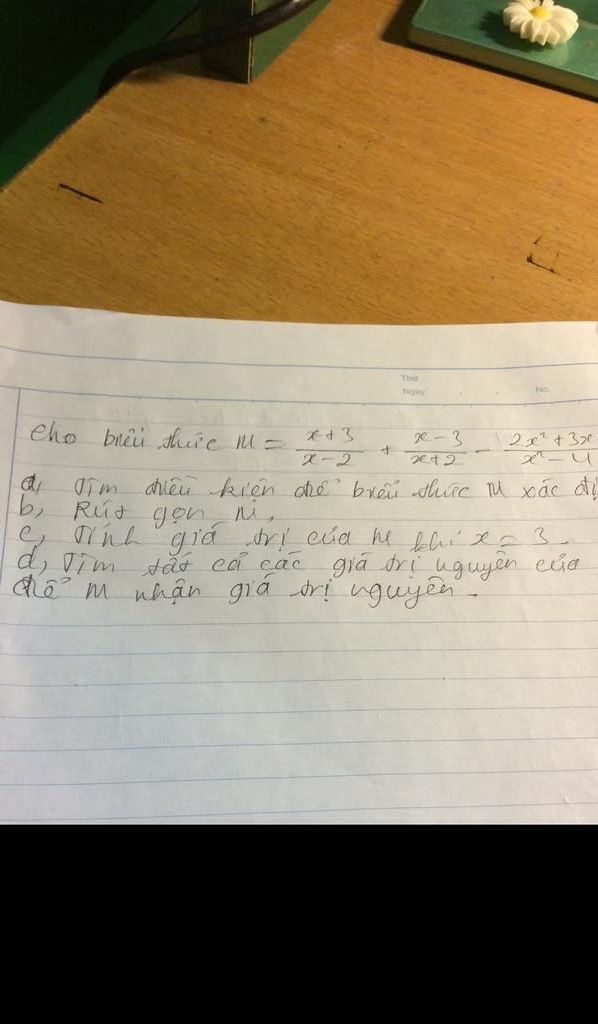 Thứ
Ngày . . No.
Cho biểu thức M = \frac{x+3}{x-2} + \frac{x-3}{x+2} - \frac{2x²+3x}{x²-4}
a, Tìm điều kiện để biểu thức M xác đị
b, Rút gọn M,
c, Tính giá trị của M khi x = 3.
d, Tìm tất cả các giá trị nguyên của
để M nhận giá trị nguyên.